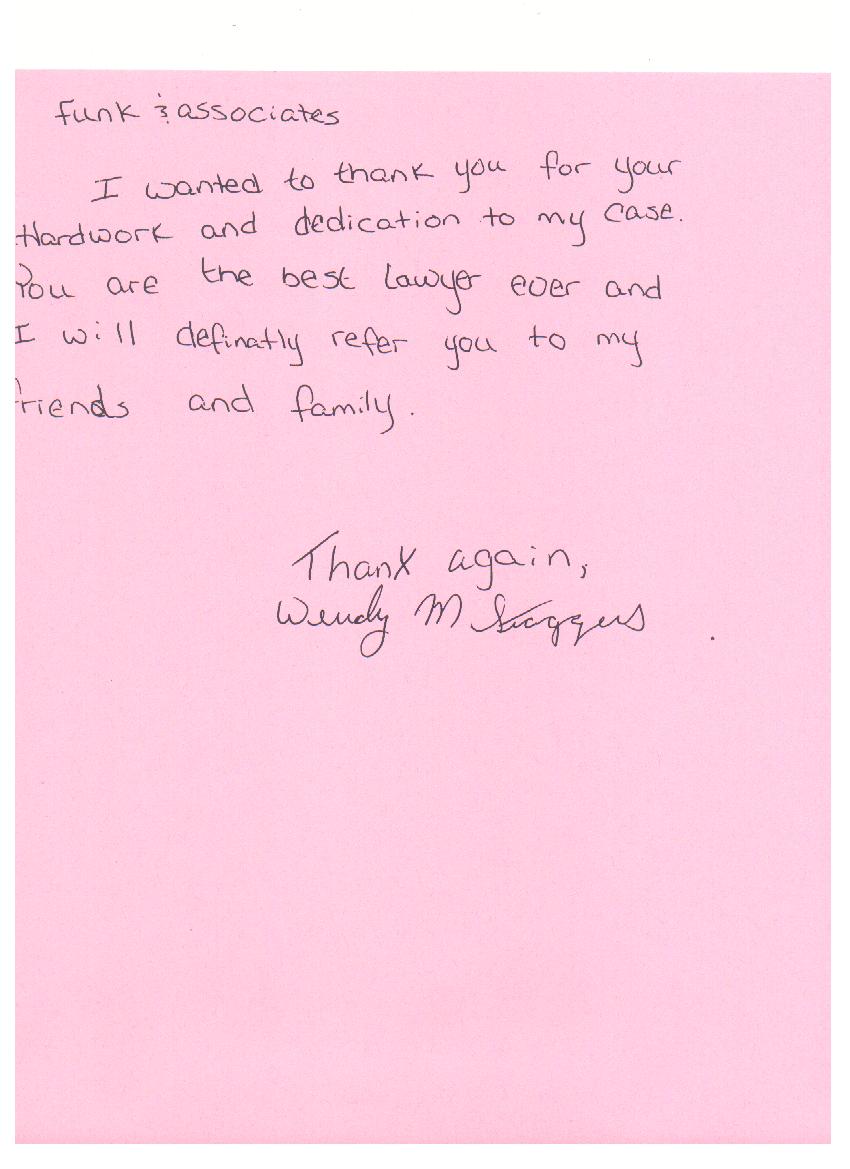 Funk & associates
I wanted to thank you for your
Hardwork and dedication to my case.
You are the best lawyer ever and
I will definatly refer you to my
friends and family.
Thanx again,
Wendy M Staggers